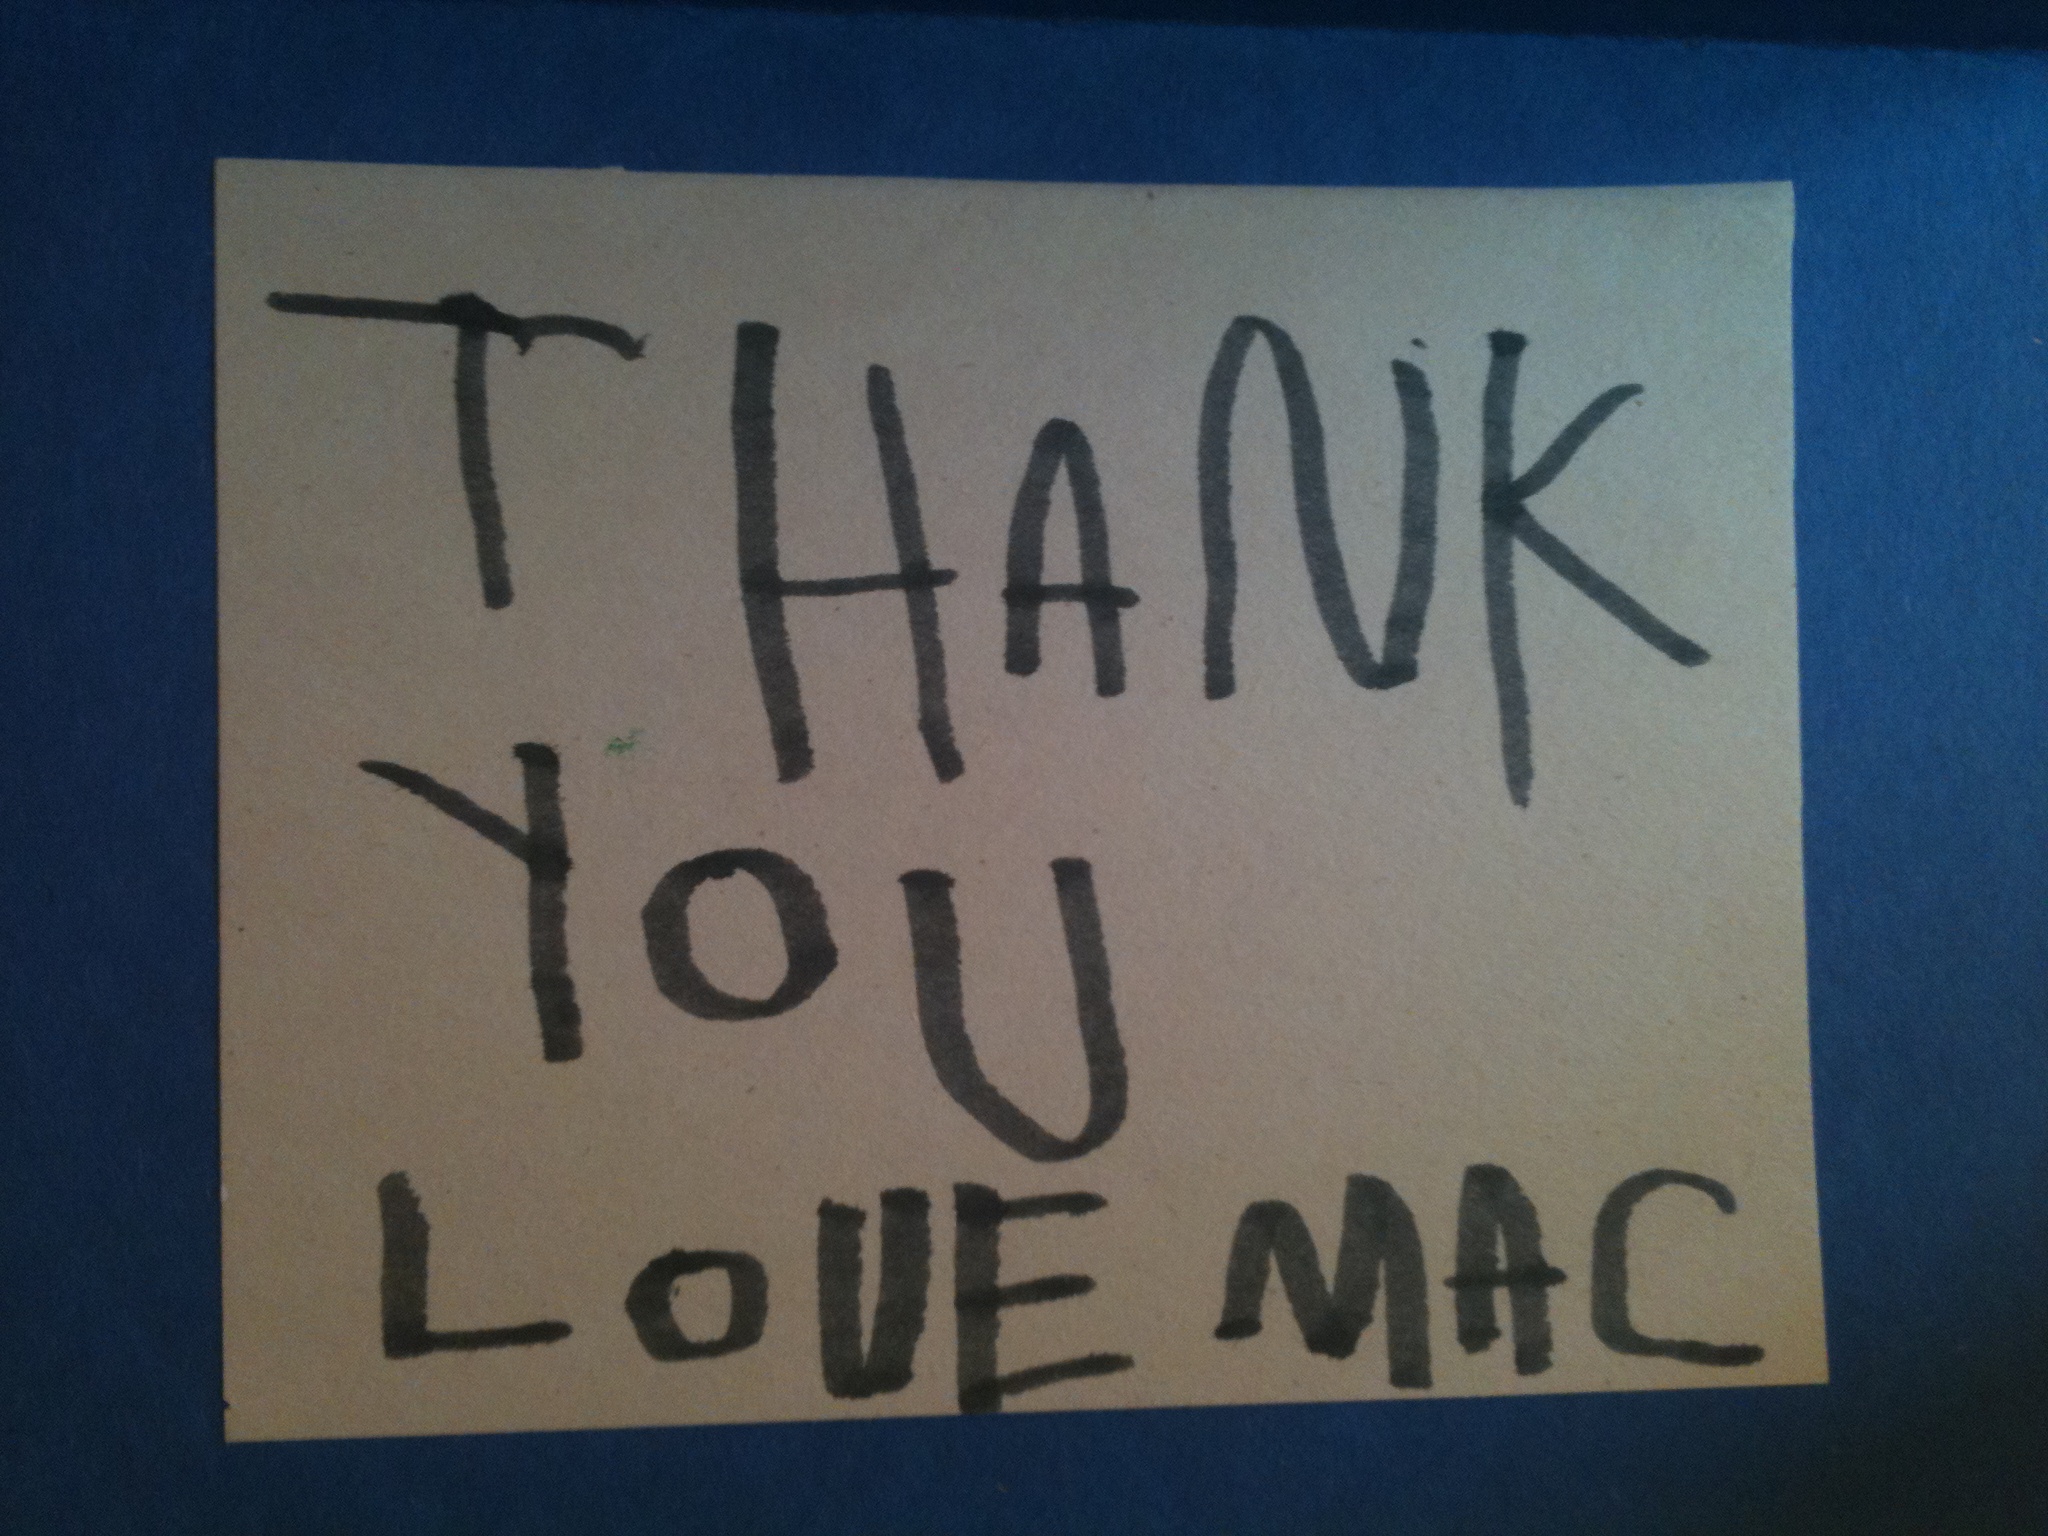 THANK
YOU
LOVE MAC